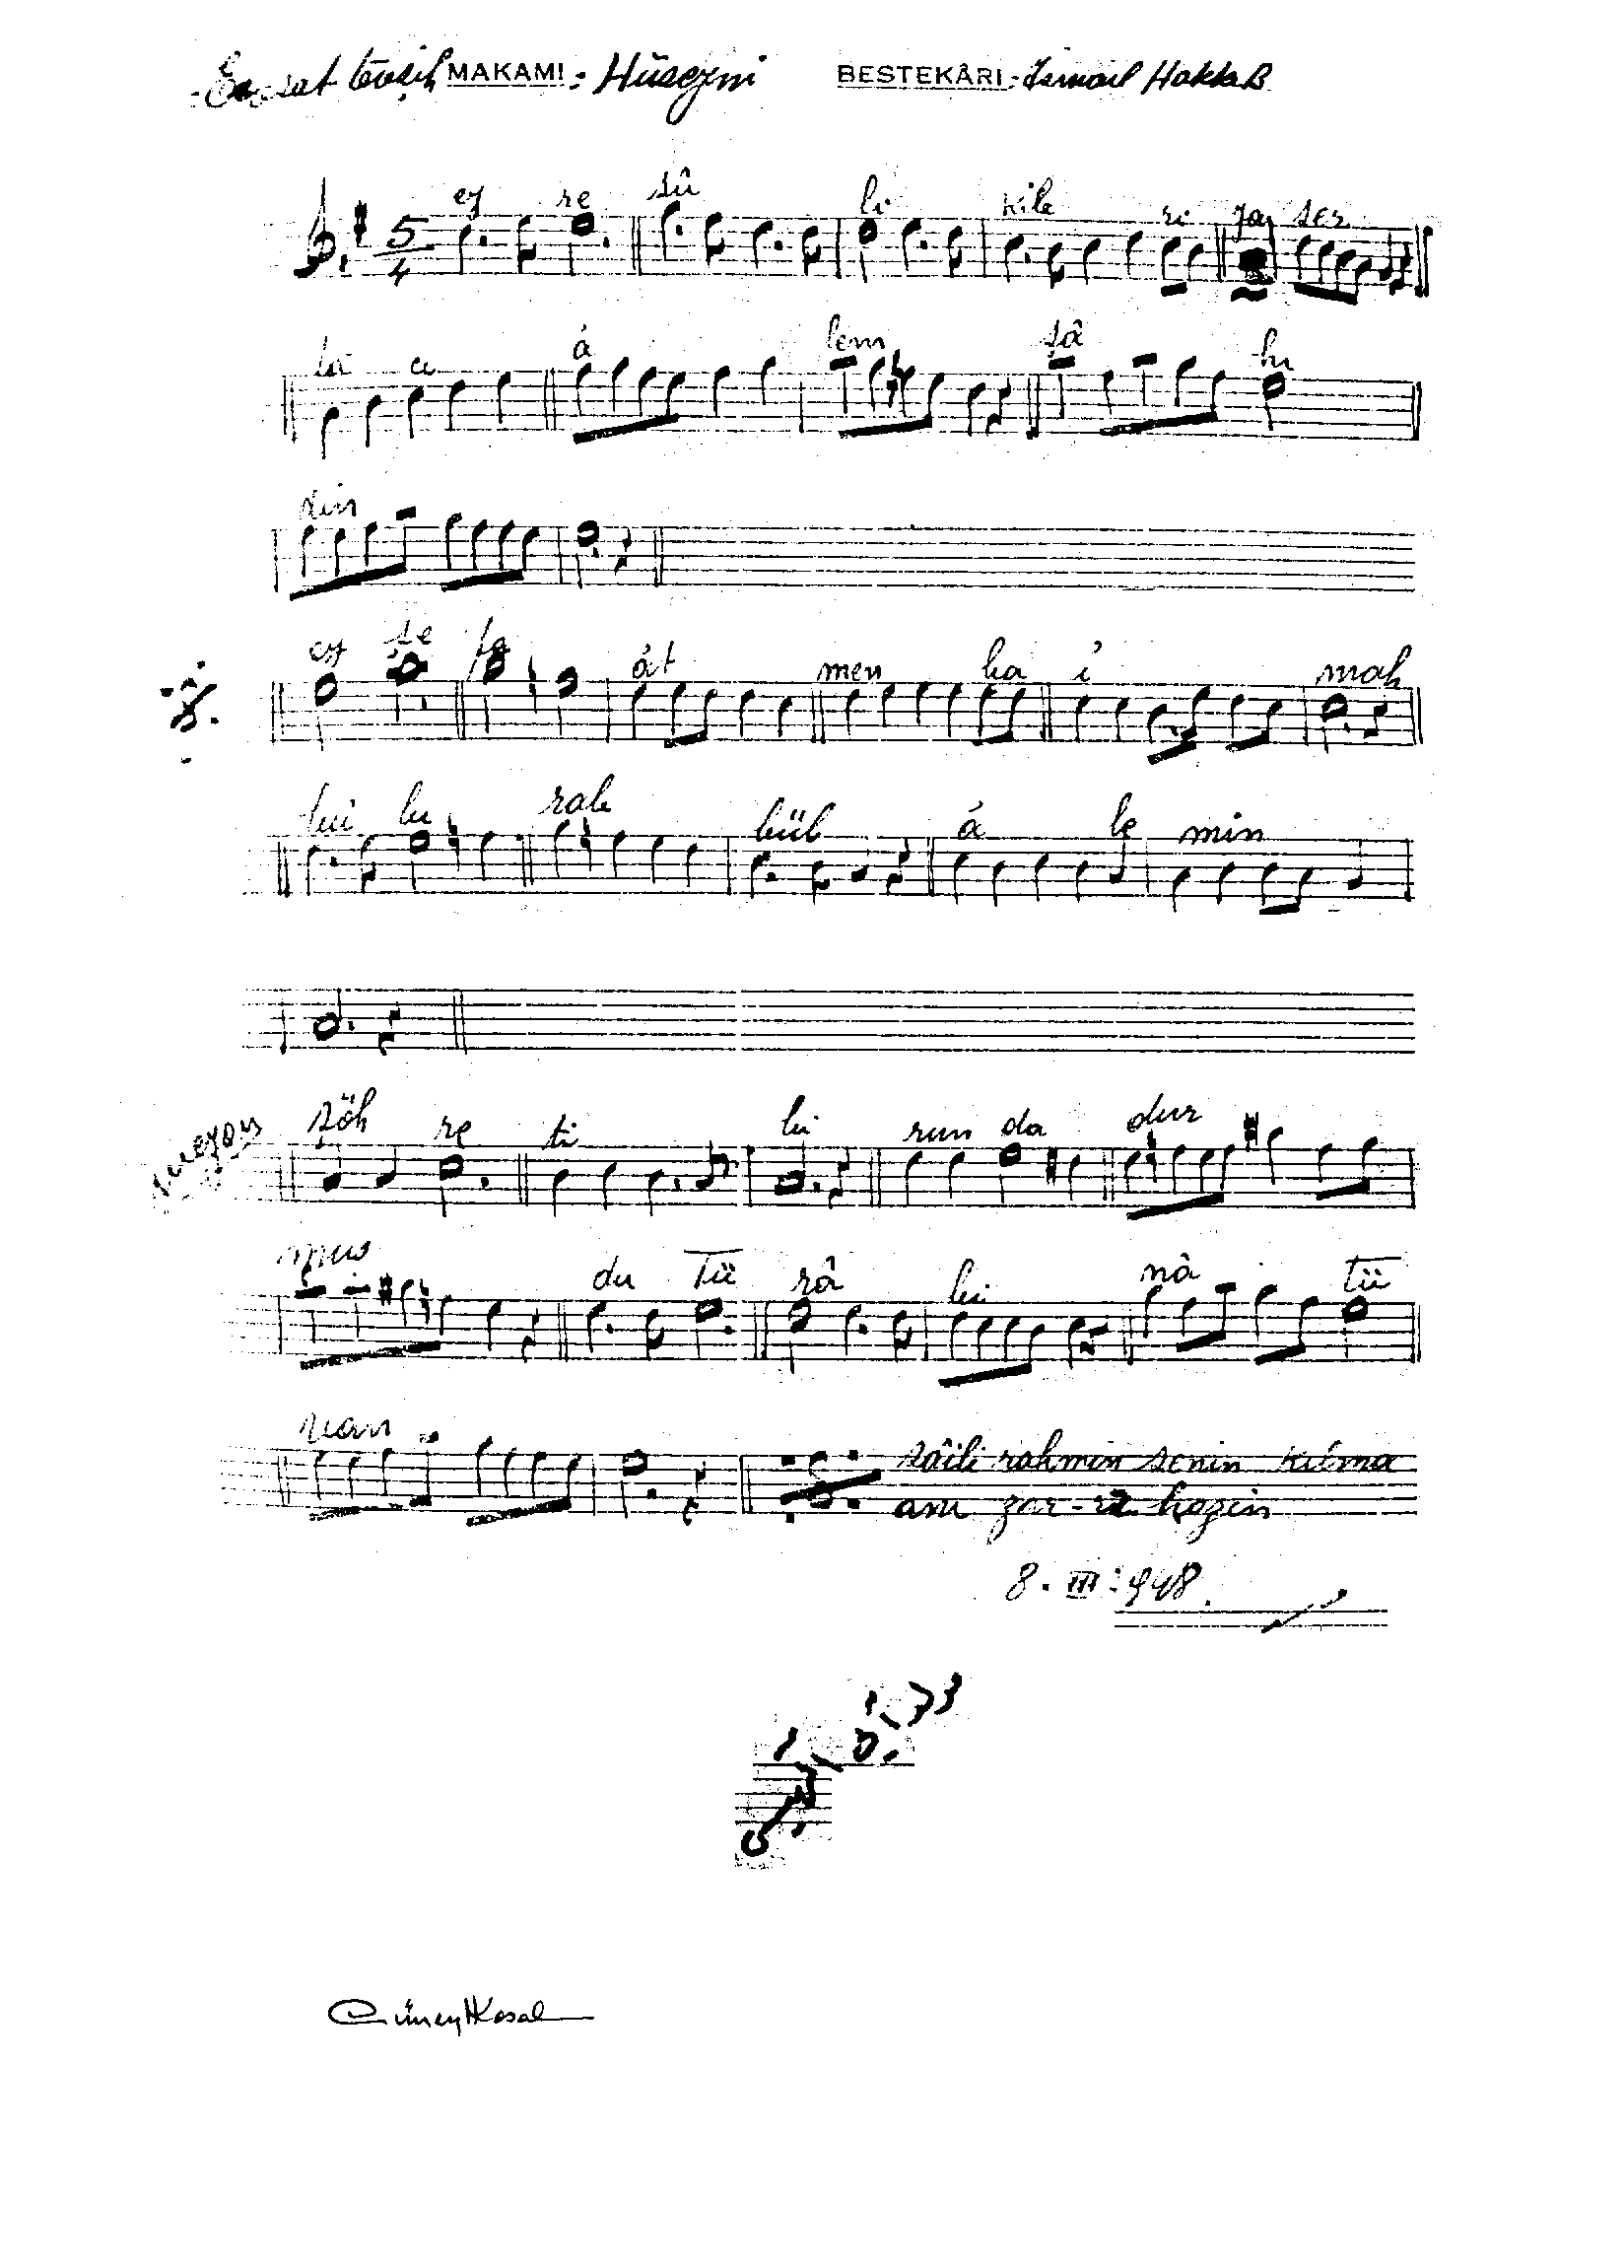 Evsat tevşih MAKAMI: Hüseyni BESTEKÂRI: İsmail Hakkı B
5
4
ey re sû li kib ri ya ser
â lem şâ hı
din
ey şe fa ât men ba i mah
lu bu rab bül â le min
şöh re ti bi run da dur
du Tü râ bi nâ tü
van
sâili rahmin senin kılma
anı zar-ı hazin
8. III. 948.
Cüneyt Kosal